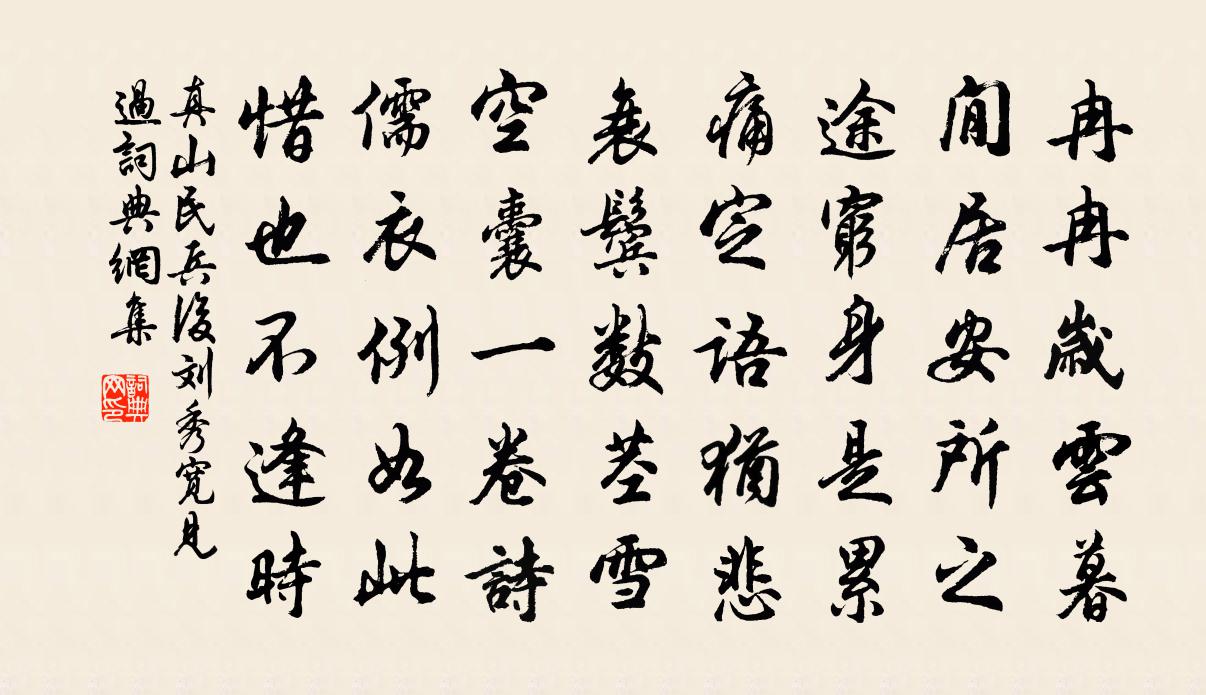 冉冉歲雲暮
閒居安所之
途窮身是累
痛定語猶悲
衰鬢數莖雪
空囊一卷詩
儒衣例如此
惜也不逢時
真山民兵後刘秀寬見
過詞典網集
詞典
网印